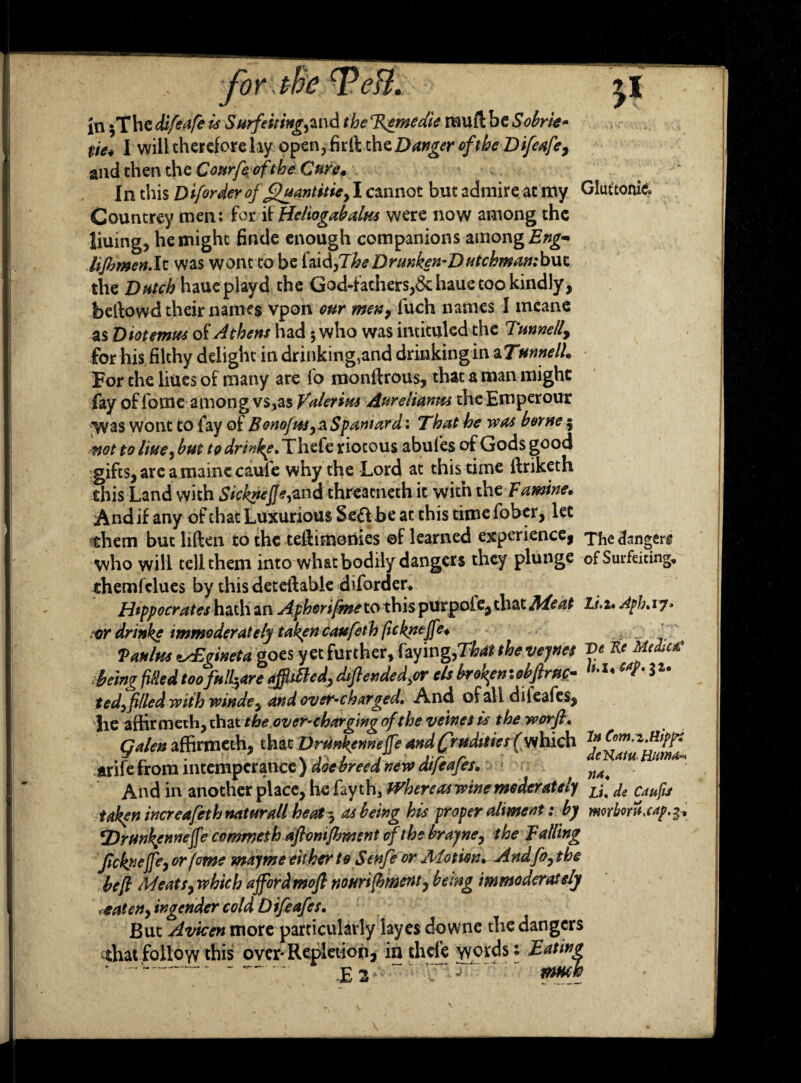 for the Pest. 31
in; The disease is Surfeiting, and the Remedie must be Sobrie-
tie. I will therefore lay open, first the Danger of the Disease,
and then the Course of the Cure.
In this Disorder of Quantitie, I cannot but admire at my Gluttonie.
Countrey men: for if Heliogabalus were now among the
liuing, he might finde enough companions among Eng-
lishmen. It was wont to be said, The Drunken-Dutchman: but
the Dutch haue playd the God-fathers, & haue too kindly,
bestowd their names vpon our men, such names I meane
as Diotemus of Athens had; who was intituled the Tunnell,
for his filthy delight in drinking, and drinking in a Tunnell.
For the liues of many are so monstrous, that a man might
say of some among vs, as Valerius Aurelianus the Emperour
was wont to say of Bonosus, a Spaniard: That he was borne;
not to liue, but to drinke. These riotous abuses of Gods good
gifts, are a maine cause why the Lord at this time striketh
this Land with Sicknesse, and threatneth it with the Famine.
And if any of that Luxurious Sect be at this time sober, let
them but listen to the testimonies of learned experience, The dangers
who will tell them into what bodily dangers they plunge of Surfeiting.
themselues by this detestable disorder.
Hippocrates hath an Aphorisme to this purpose, that Meat Li.2. Aph.17.
or drinke immoderately taken causeth sicknesse.
Paulus Ægineta goes yet further, saying, That the veynes De Re Medica
being filled too full, are afflicted, distended, or els broken: obstruc- li.1. cap. 32.
ted, filled with winde, and over-charged. And of all diseases,
he affirmeth, that the over-charging of the veines is the worst.
Galen affirmeth, that Drunkennesse and Crudities (which In Com.2.Hipp:
arise from intemperance) doe breed new diseases. de Natu. Huma-
na.
And in another place, he sayth, Whereas wine moderately Li. de Causis
taken increaseth naturall heat; as being his proper aliment: by morborū.cap.3.
Drunkennesse commeth astonishment of the brayne, the Falling
sicknesse, or some mayme either to Sense or Motion. And so, the
best Meats, which afford most nourishment, being immoderately
eaten, ingender cold Diseases.
But Avicen more particularly layes downe the dangers
that follow this over-Repletion, in these words: Eating
E 2 much